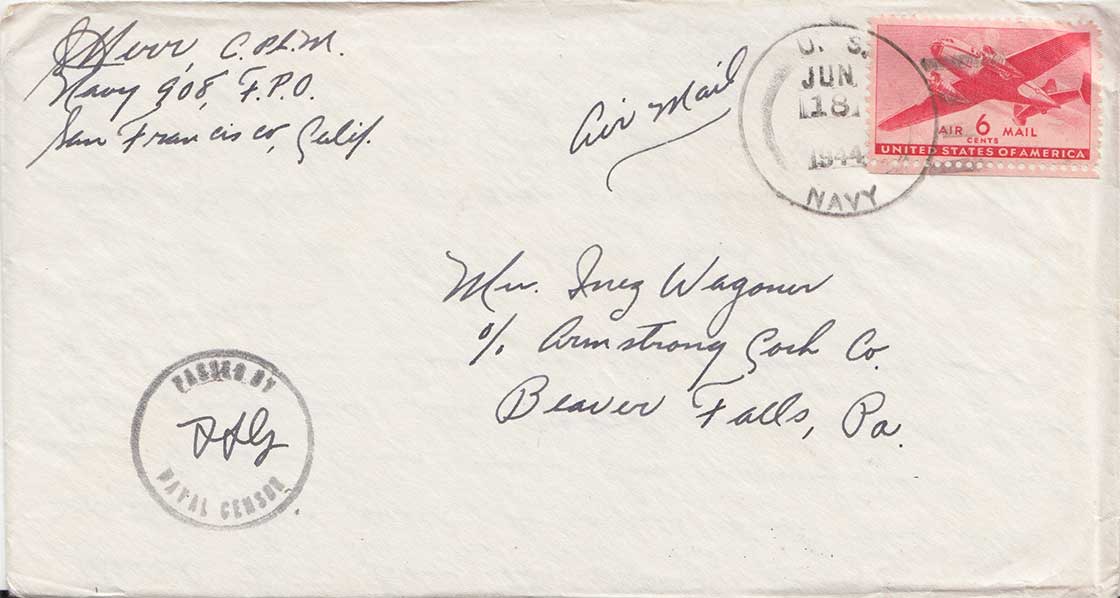 Herr, C. Ph.M.
Navy 908, F.P.O.
San Francisco, Calif.
Air Mail
U. S.
JUN
18
1944
NAVY
AIR 6 MAIL
CENTS
UNITED STATES OF AMERICA
Inez Wagoner
% Armstrong Cork Co.
Beaver Falls, Pa.
PASSED BY
NAVAL CENSOR